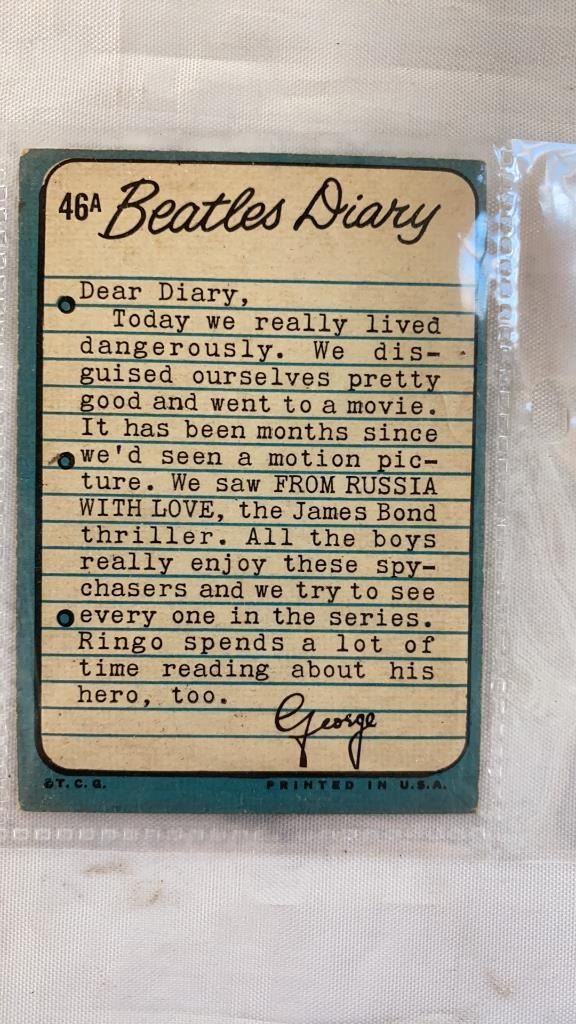 46A Beatles Diary
Dear Diary,
Today we really lived
dangerously. We dis-
guised ourselves pretty
good and went to a movie.
It has been months since
we'd seen a motion pic-
ture. We saw FROM RUSSIA
WITH LOVE, the James Bond
thriller. All the boys
really enjoy these spy-
chasers and we try to see
every one in the series.
Ringo spends a lot of
time reading about his
hero, too.
George
©T.C.G. PRINTED IN U.S.A.